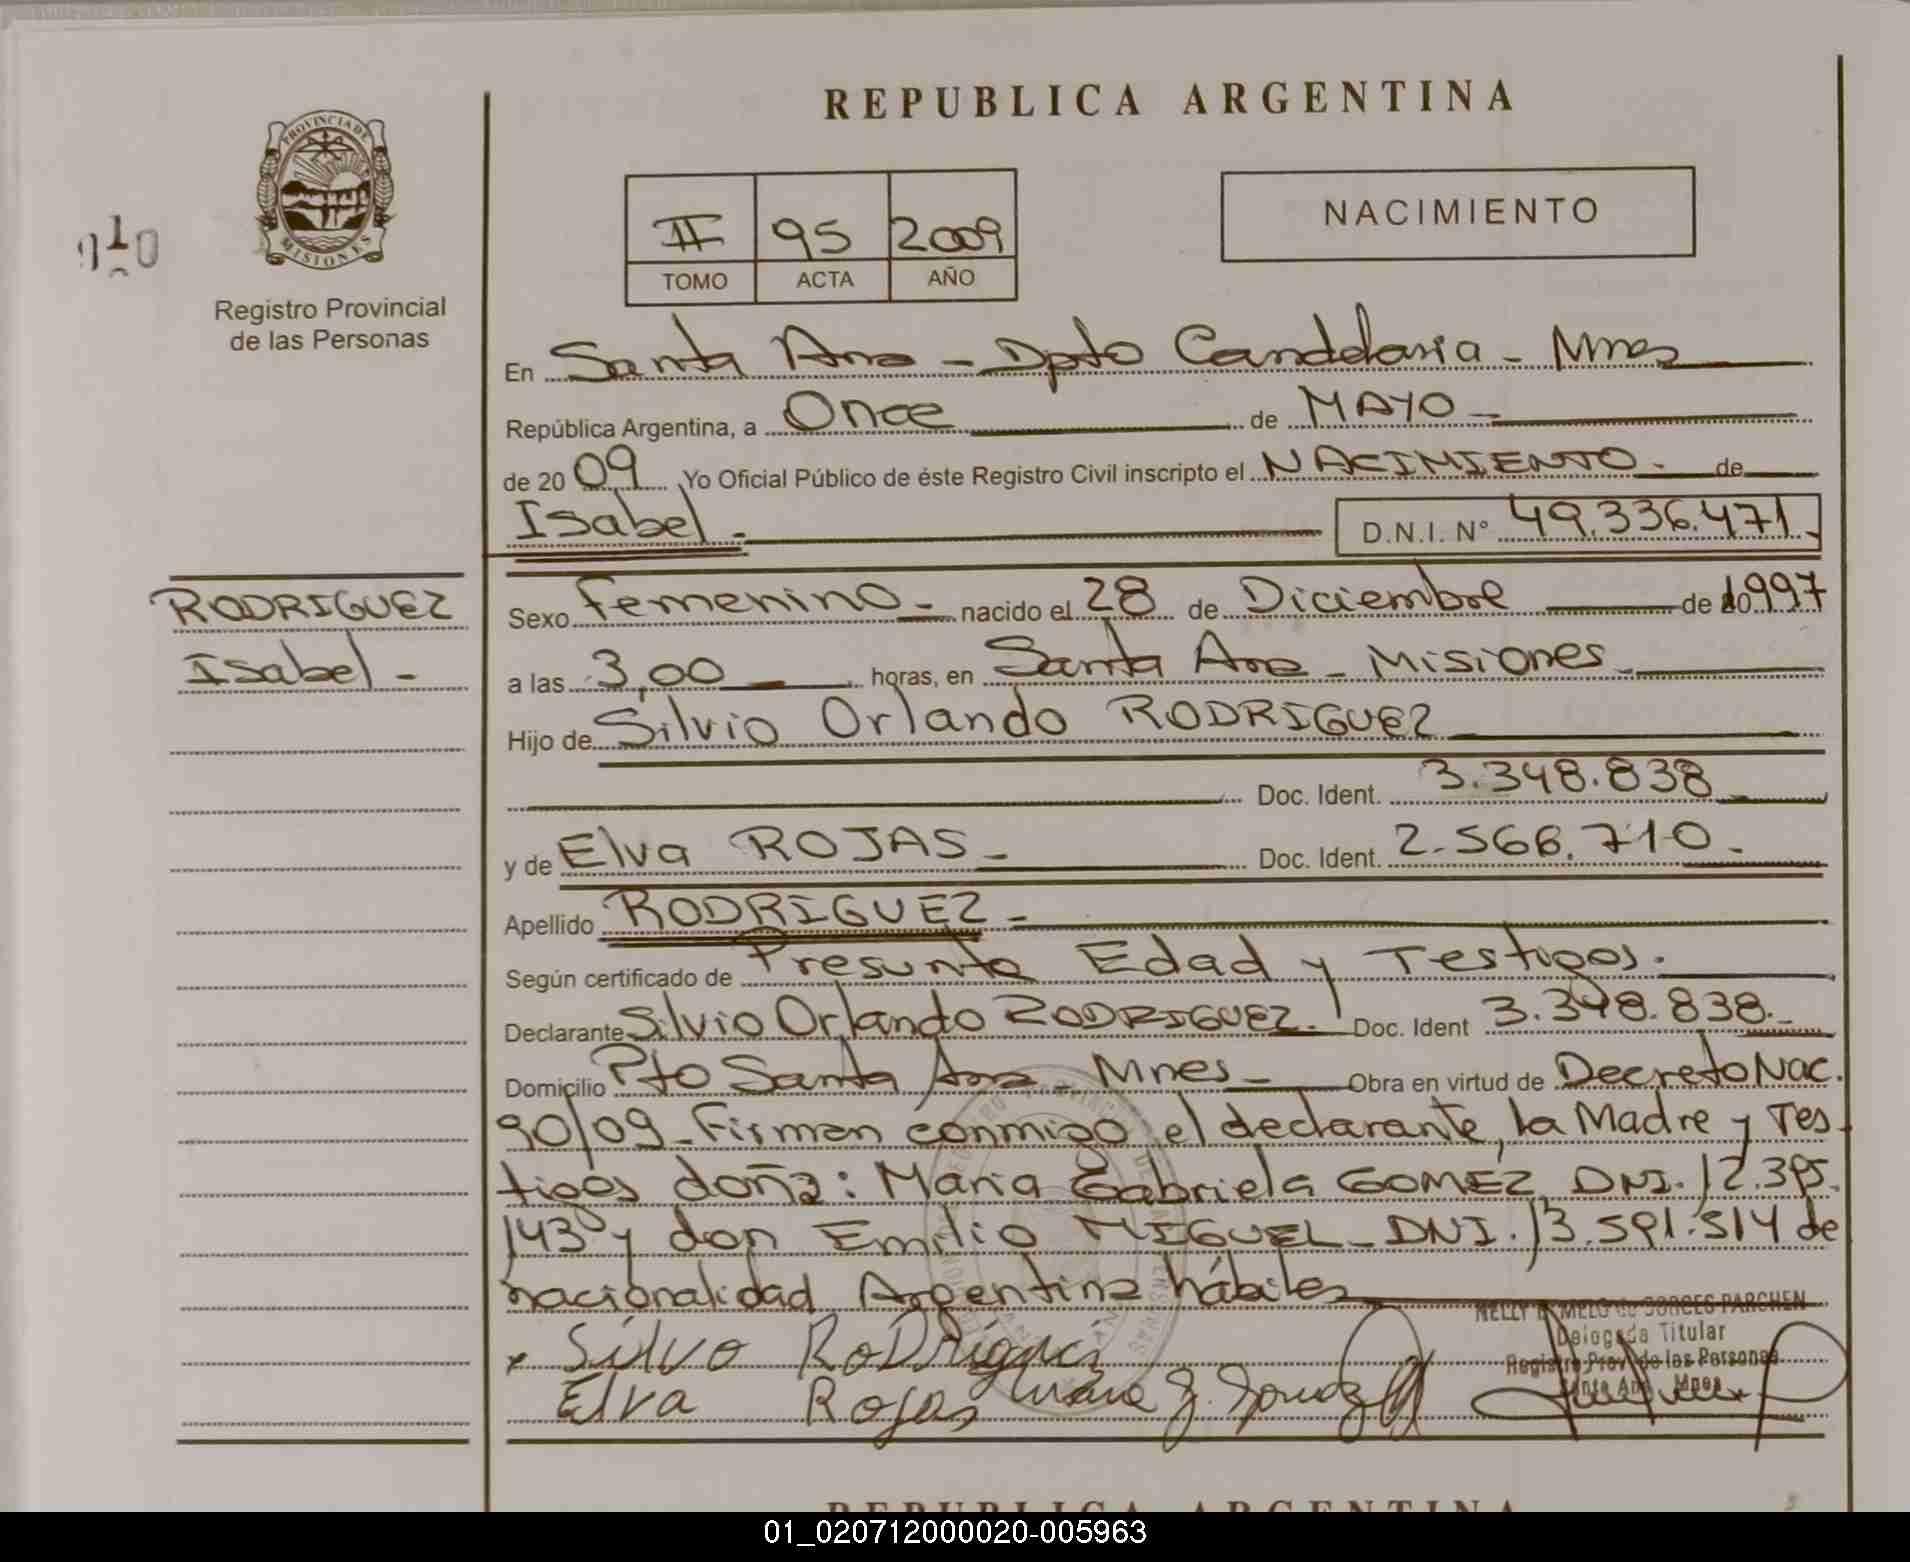 REPUBLICA ARGENTINA
PROVINCIA DE
MISIONES
910
Registro Provincial
de las Personas
II 95 2009
TOMO ACTA AÑO
NACIMIENTO
En Santa Ana - Dpto Candelaria - Mnes
República Argentina, a Once de MAYO -
de 2009 Yo Oficial Público de éste Registro Civil inscripto el NACIMIENTO. de
Isabel.- D.N.I. N° 49.336.471.
RODRIGUEZ
Isabel -
Sexo Femenino - nacido el 28 de Diciembre de 1997
a las 3,00 horas, en Santa Ana - Misiones -
Hijo de Silvio Orlando RODRIGUEZ
Doc. Ident. 3.348.838
y de Elva ROJAS - Doc. Ident. 2.566.710.
Apellido RODRIGUEZ -
Según certificado de Presunta Edad y Testigos.
Declarante Silvio Orlando RODRIGUEZ. Doc. Ident 3.348.838.
Domicilio Pto Santa Ana - Mnes - Obra en virtud de Decreto Nac.
90/09 - Firman conmigo el declarante, la Madre y Tes-
tigos doña: Maria Gabriela GOMEZ, DNI. 12.395.
143 y don Emilio MIGUEL - DNI. 13.591.514 de
nacionalidad Argentina hábiles
Silvo RoDriguez
Elva Rojas
NELLY MELO de BORGES PARCHEN
Delegada Titular
Registro Prov. de las Personas
Santa Ana Mnes
REPUBLICA ARGENTINA
01_020712000020-005963